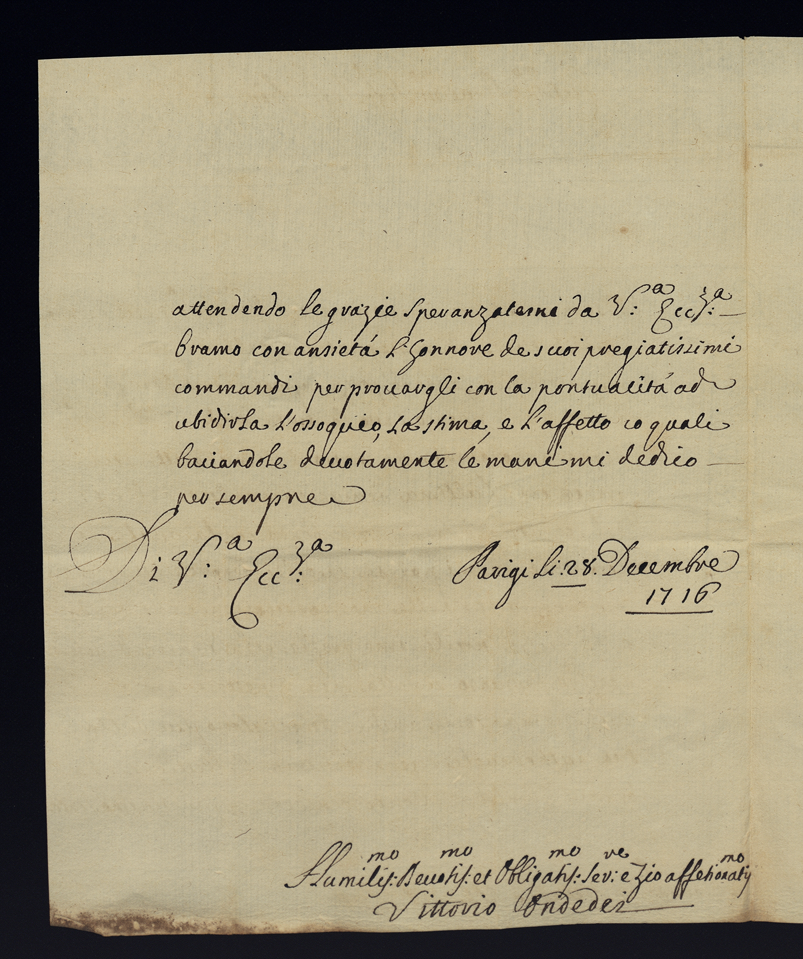 attendendo le grazie speranzatemi da V:ª Ecc:zª
bramo con ansietá l'honnore de suoi pregiatissimi
commandi per prouargli con la pontualitá ad
ubidirla l'ossoquio, la stima, e l'affetto co quali
baciandole deuotamente le mani mi dedico
per sempre
Di V:ª Ecc:zª
Parigi li 28. Decembre
1716
Humiliss:mo Deuotiss:mo et Obligatiss:mo Ser:ve e Zio affetionatiss:mo
Vittorio Ondedei